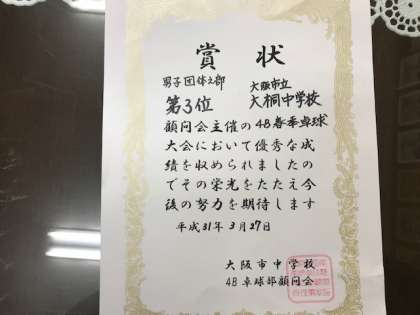 賞状
男子団体2部
大阪市立
第3位
大桐中学校
顧問会主催の48春季卓球
大会において優秀な成
績を収められましたの
でその栄光をたたえ今
後の努力を期待します
平成31年3月27日
大阪市中学校
48卓球部顧問会